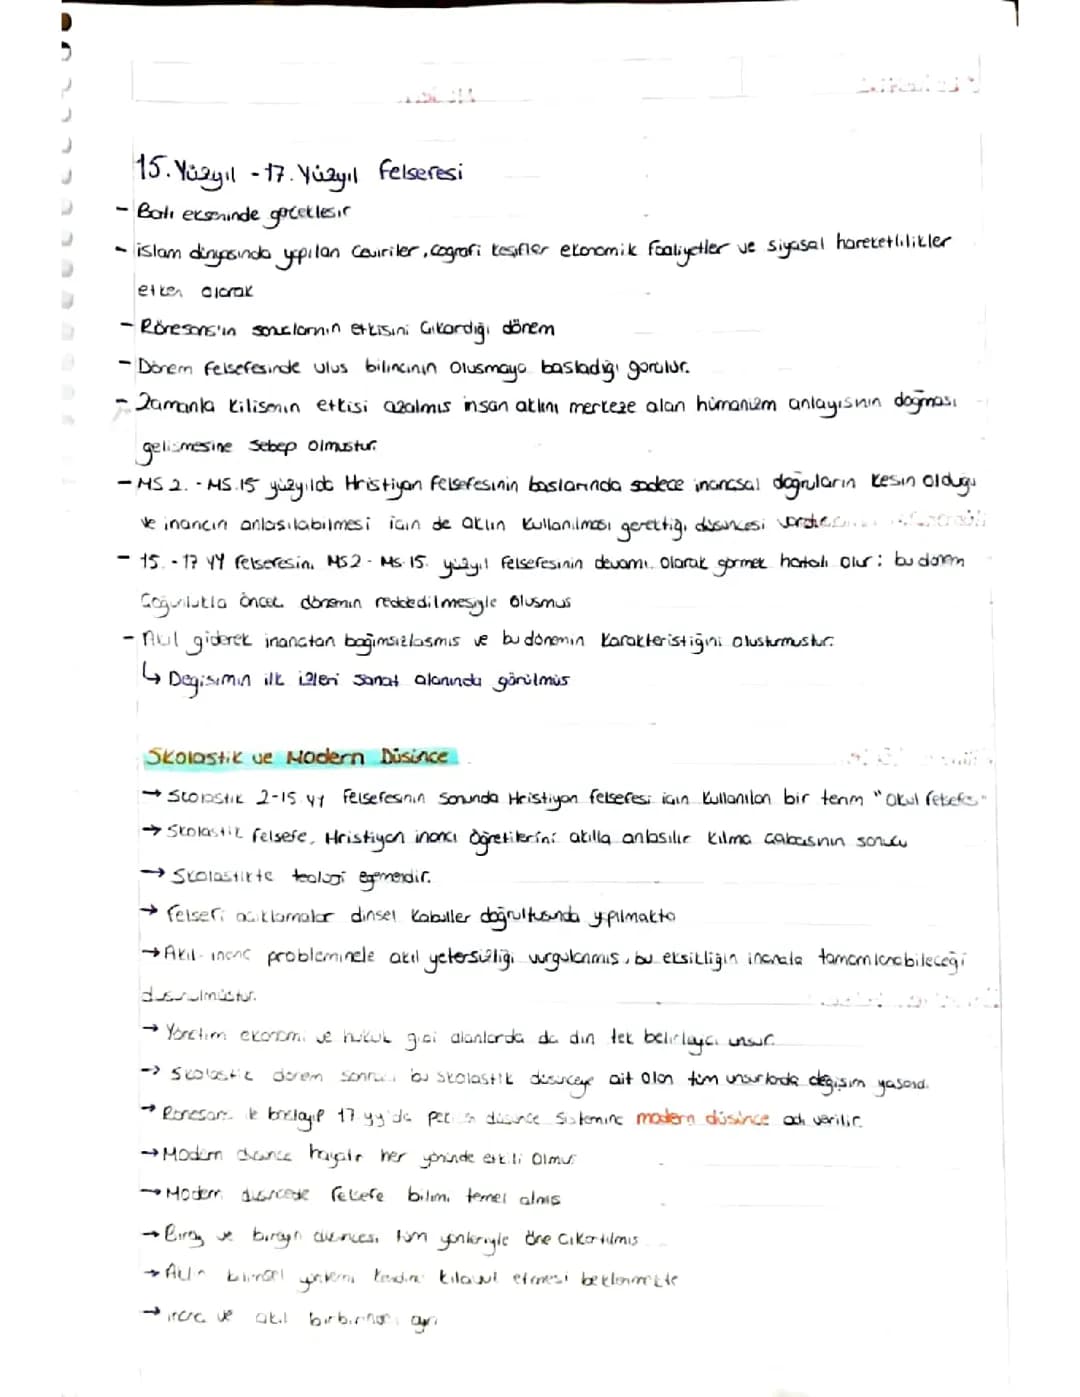 15. Yüzyıl - 17. Yüzyıl felseresi
- Batı ekseninde geçekleşir
- islam dünyasında yapılan Çeviriler, Coğrafi keşifler ekonomik faaliyetler ve siyasal hareketlilikler
etken olarak
- Rönesans'ın sonuçlarının etkisini Çıkardığı dönem
- Dönem felsefesinde ulus bilincinin oluşmaya başladığı görülür.
- Zamanla kilisenin etkisi azalmış insan aklını merkeze alan hümanizm anlayışının doğması
gelişmesine sebep olmuştur.
- MS 2. - MS.15 yüzyılda Hristiyan felsefesinin başlarında sadece inançsal doğruların kesin olduğu
ve inancın anlaşılabilmesi için de aklın kullanılması gerektiği düşüncesi vardır
- 15. - 17 YY felsefesini MS2 - MS 15. yüzyıl felsefesinin devamı olarak görmek hatalı olur: bu dönem
Çoğunlukla önceki dönemin reddedilmesiyle oluşmuş
- Akıl giderek inançtan bağımsızlaşmış ve bu dönemin karakteristiğini oluşturmuştur.
↳ Değişimin ilk izleri sanat alanında görülmüş
Skolastik ve Modern Düşünce
→ Skolastik 2-15 yy felsefesinin sonunda Hristiyan felsefesi için kullanılan bir terim "Okul felsefesi"
→ Skolastik felsefe, Hristiyan inancı öğretilerini akılla anlaşılır kılma çabasının sonucu
→ Skolastikte teoloji egemendir.
→ felsefi açıklamalar dinsel kabuller doğrultusunda yapılmakta
→ Akıl-inanç probleminde akıl yetersizliği vurgulanmış, bu eksikliğin inançla tamamlanabileceği
düşünülmüştür.
→ Yönetim ekonomi ve hukuk gibi alanlarda da din tek belirleyici unsur.
→ Skolastik dönem sonrası bu skolastik düşünceye ait olan tüm unsurlarda değişim yaşandı.
→ Rönesans ile başlayıp 17 yy'da düşünce Sistemine modern düşünce adı verilir.
→ Modern düşünce hayatın her yönünde etkili olmuş
→ Modern düşüncede felsefe bilimi temel almış
→ Birey ve bireyin düşüncesi tüm yönleriyle öne çıkartılmış
→ Aklın bilimsel yöntemi kendine kılavuz etmesi beklenmekte
→ inanç ve akıl birbirinden ayrı